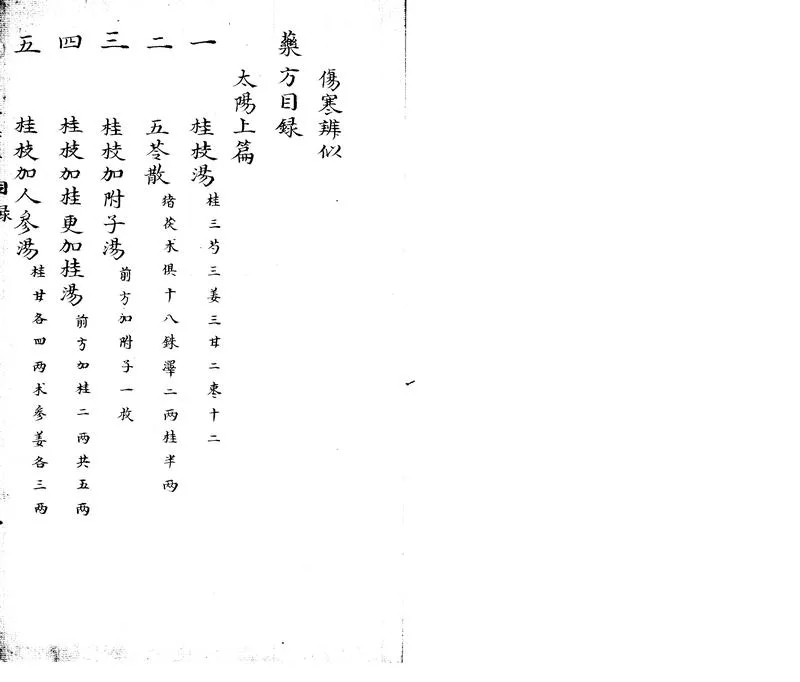 傷寒辨似
藥方目録
太陽上篇
一 桂枝湯 桂三芍三姜三甘二枣十二
二 五苓散 猪茯术俱十八銖澤二两桂半两
三 桂枝加附子湯 前方加附子一枚
四 桂枝加桂更加桂湯 前方加桂二两共五两
五 桂枝加人參湯 桂甘各四两术參姜各三两
目録